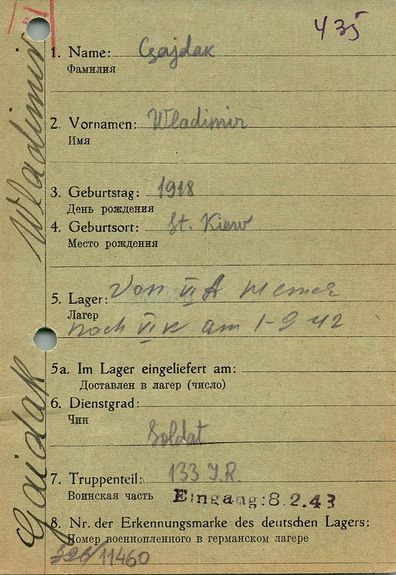 435
1. Name: Gajdak
Фамилия
2. Vornamen: Wladimir
Имя
3. Geburtstag: 1918
День рождения
4. Geburtsort: St. Kiew
Место рождения
5. Lager: Von VI A
Лагер
nach VI K am 1-9 42
5a. Im Lager eingeliefert am:
Доставлен в лагер (число)
6. Dienstgrad:
Чин
Soldat
7. Truppenteil: 133 J.R.
Воинская часть Eingang: 8.2.43
8. Nr. der Erkennungsmarke des deutschen Lagers:
Номер военнопленного в германском лагере
326/11460
Gaidak Wladimir